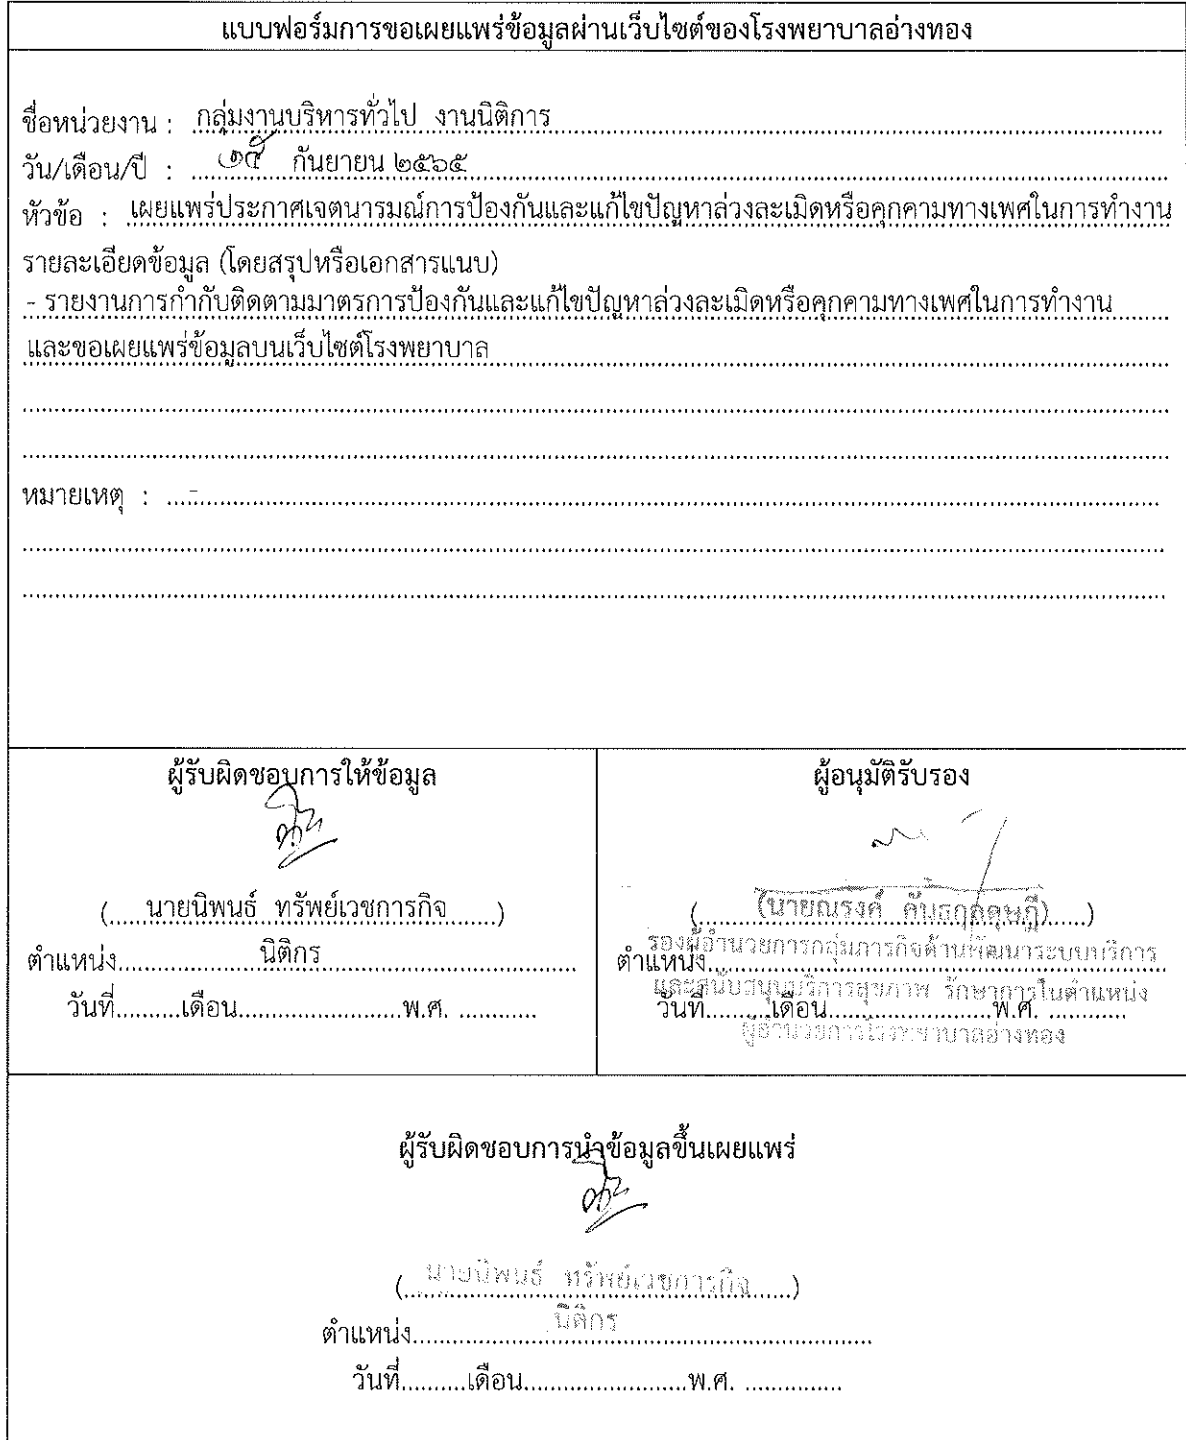 แบบฟอร์มการขอเผยแพร่ข้อมูลผ่านเว็บไซต์ของโรงพยาบาลอ่างทอง
ชื่อหน่วยงาน : กลุ่มงานบริหารทั่วไป งานนิติการ
วัน/เดือน/ปี : ๑๕ กันยายน ๒๕๖๕
หัวข้อ : เผยแพร่ประกาศเจตนารมณ์การป้องกันและแก้ไขปัญหาล่วงละเมิดหรือคุกคามทางเพศในการทำงาน
รายละเอียดข้อมูล (โดยสรุปหรือเอกสารแนบ)
- รายงานการกำกับติดตามมาตรการป้องกันและแก้ไขปัญหาล่วงละเมิดหรือคุกคามทางเพศในการทำงาน
และขอเผยแพร่ข้อมูลบนเว็บไซต์โรงพยาบาล
หมายเหตุ : ...-...
ผู้รับผิดชอบการให้ข้อมูล
(.....นายนิพนธ์ ทรัพย์เวชการกิจ......)
ตำแหน่ง.....นิติกร.....
วันที่..........เดือน.........................พ.ศ. ............
ผู้อนุมัติรับรอง
(นายณรงค์)
ตำแหน่ง
รองผู้อำนวยการกลุ่มภารกิจด้านพัฒนาระบบบริการ
และสนับสนุนบริการสุขภาพ รักษาการในตำแหน่ง
วันที่..........เดือน.........................พ.ศ. ............
ผู้อำนวยการโรงพยาบาลอ่างทอง
ผู้รับผิดชอบการนำข้อมูลขึ้นเผยแพร่
(นายนิพนธ์ ทรัพย์เวชการกิจ......)
ตำแหน่ง.....นิติกร.....
วันที่..........เดือน.........................พ.ศ. ...............